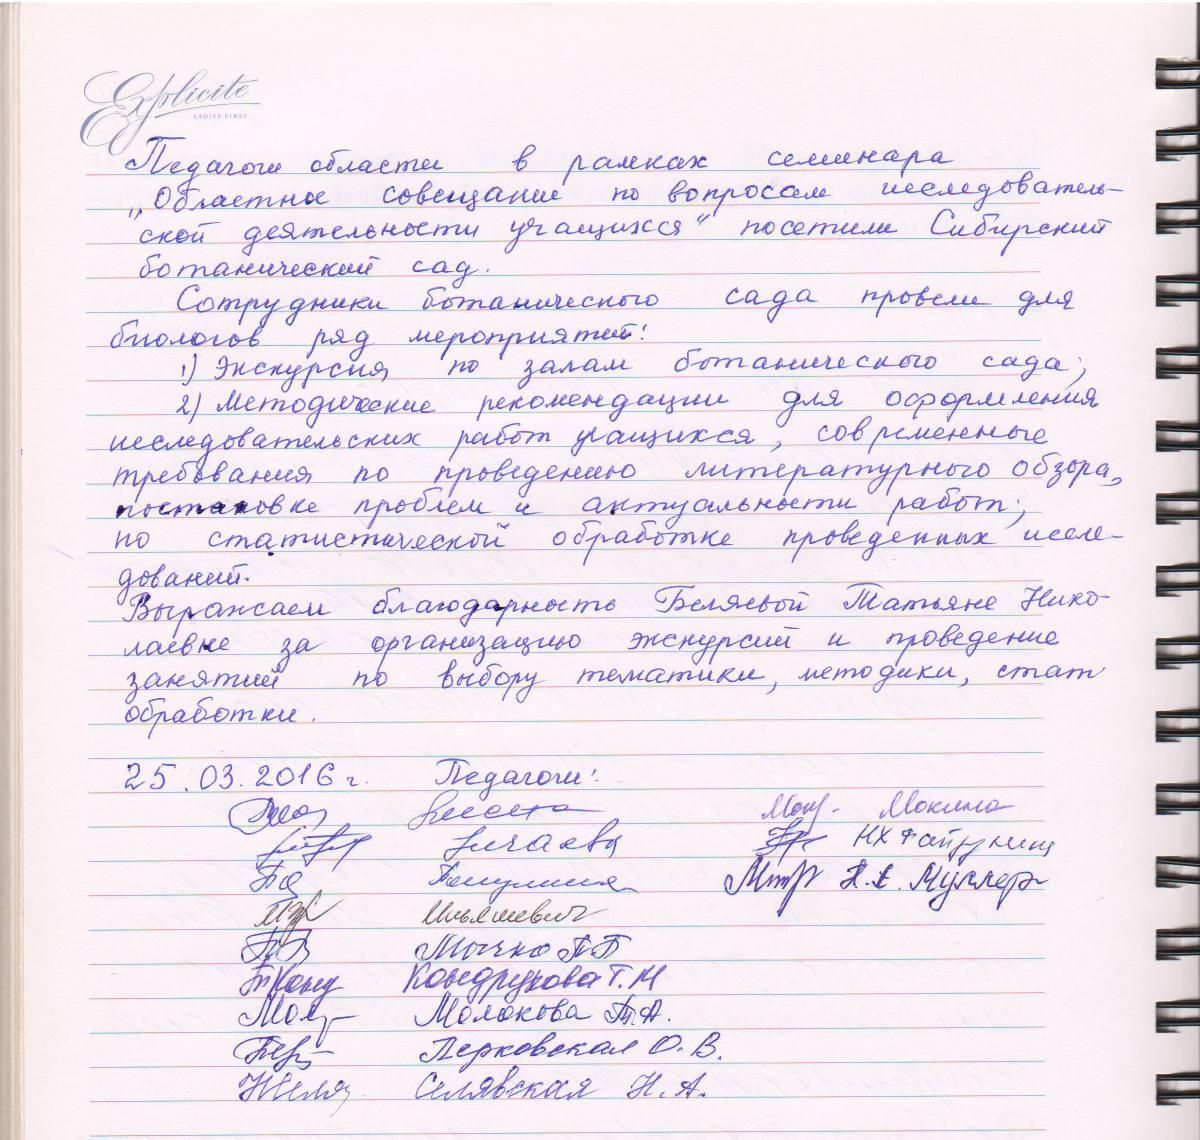 Explicite
LADIES FIRST
Педагоги области в рамках семинара
„Областное совещание по вопросам исследователь-
ской деятельности учащихся“ посетили Сибирский
ботанический сад.
Сотрудники ботанического сада провели для
биологов ряд мероприятий:
1) Экскурсия по залам ботанического сада;
2) Методические рекомендации для оформления
исследовательских работ учащихся, современные
требования по проведению литературного обзора,
постановке проблем и актуальности работ;
по статистической обработке проведенных иссле-
дований.
Выражаем благодарность Беляевой Татьяне Нико-
лаевне за организацию экскурсий и проведение
занятий по выбору тематики, методики, стат
обработки.
25.03.2016 г. Педагоги:
Мокина
Н.А. Муллер
Ильяшевич
Мычко
Кондрукова Т.М
Молокова Т.А.
Перковская О.В.
Селявская Н.А.